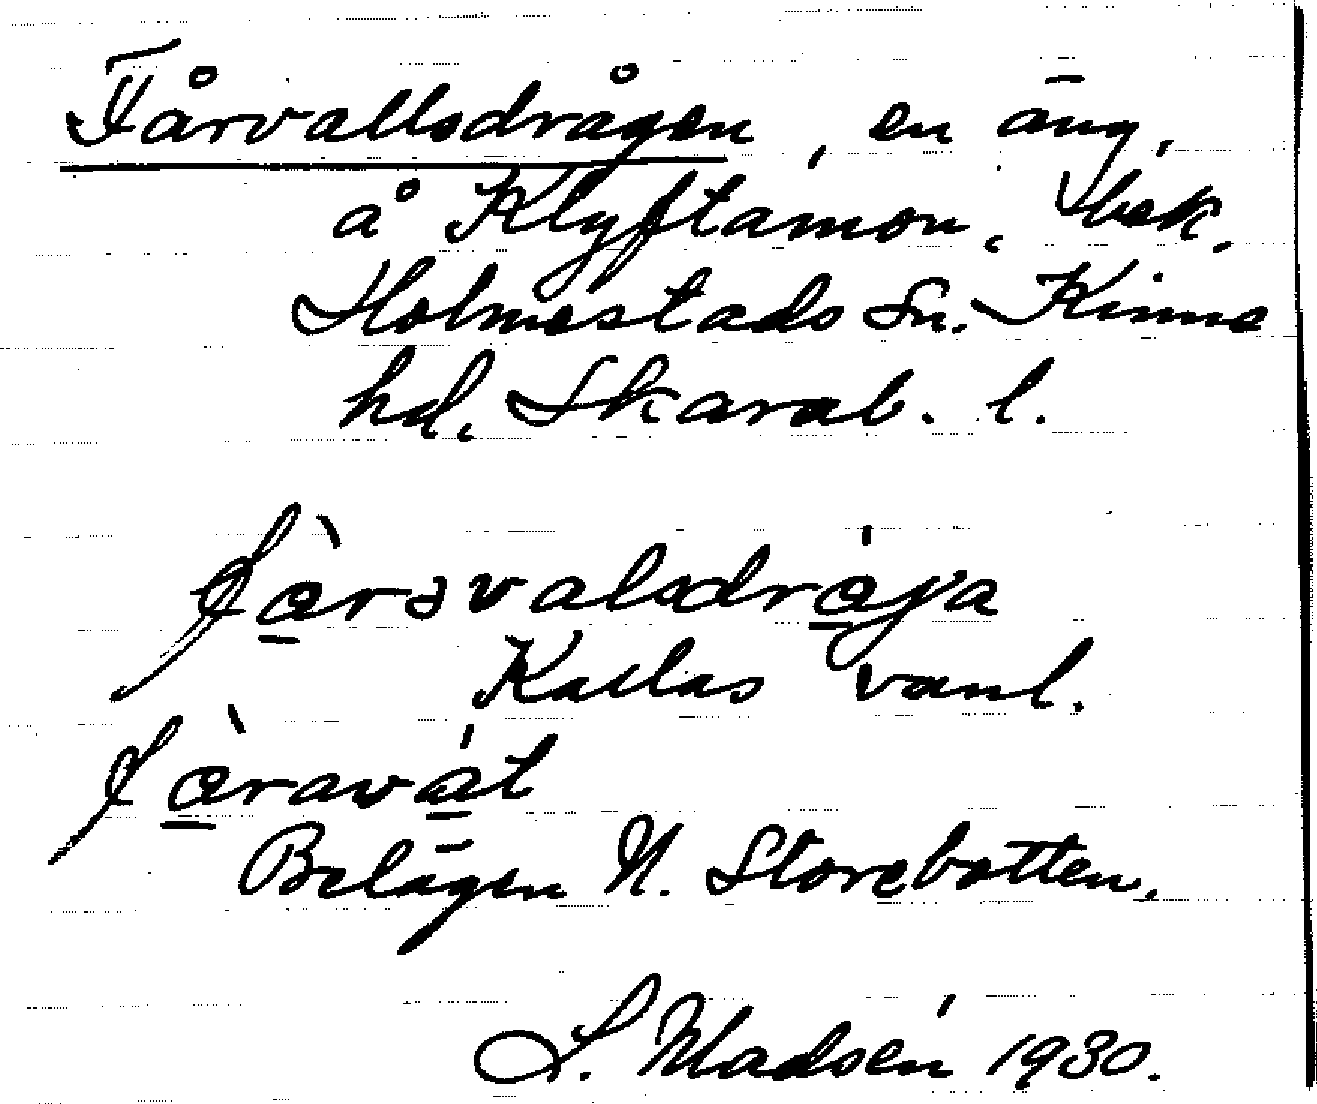 Fårvallsdrågen, en äng,
å Klyftamon. bek.
Holmestads Sn. Kinne
hd. Skarab. l.
fàrəvalsdrája
Kallas vanl.
fàravát
Belägen N. Storebotten.
S. Madsén 1930.